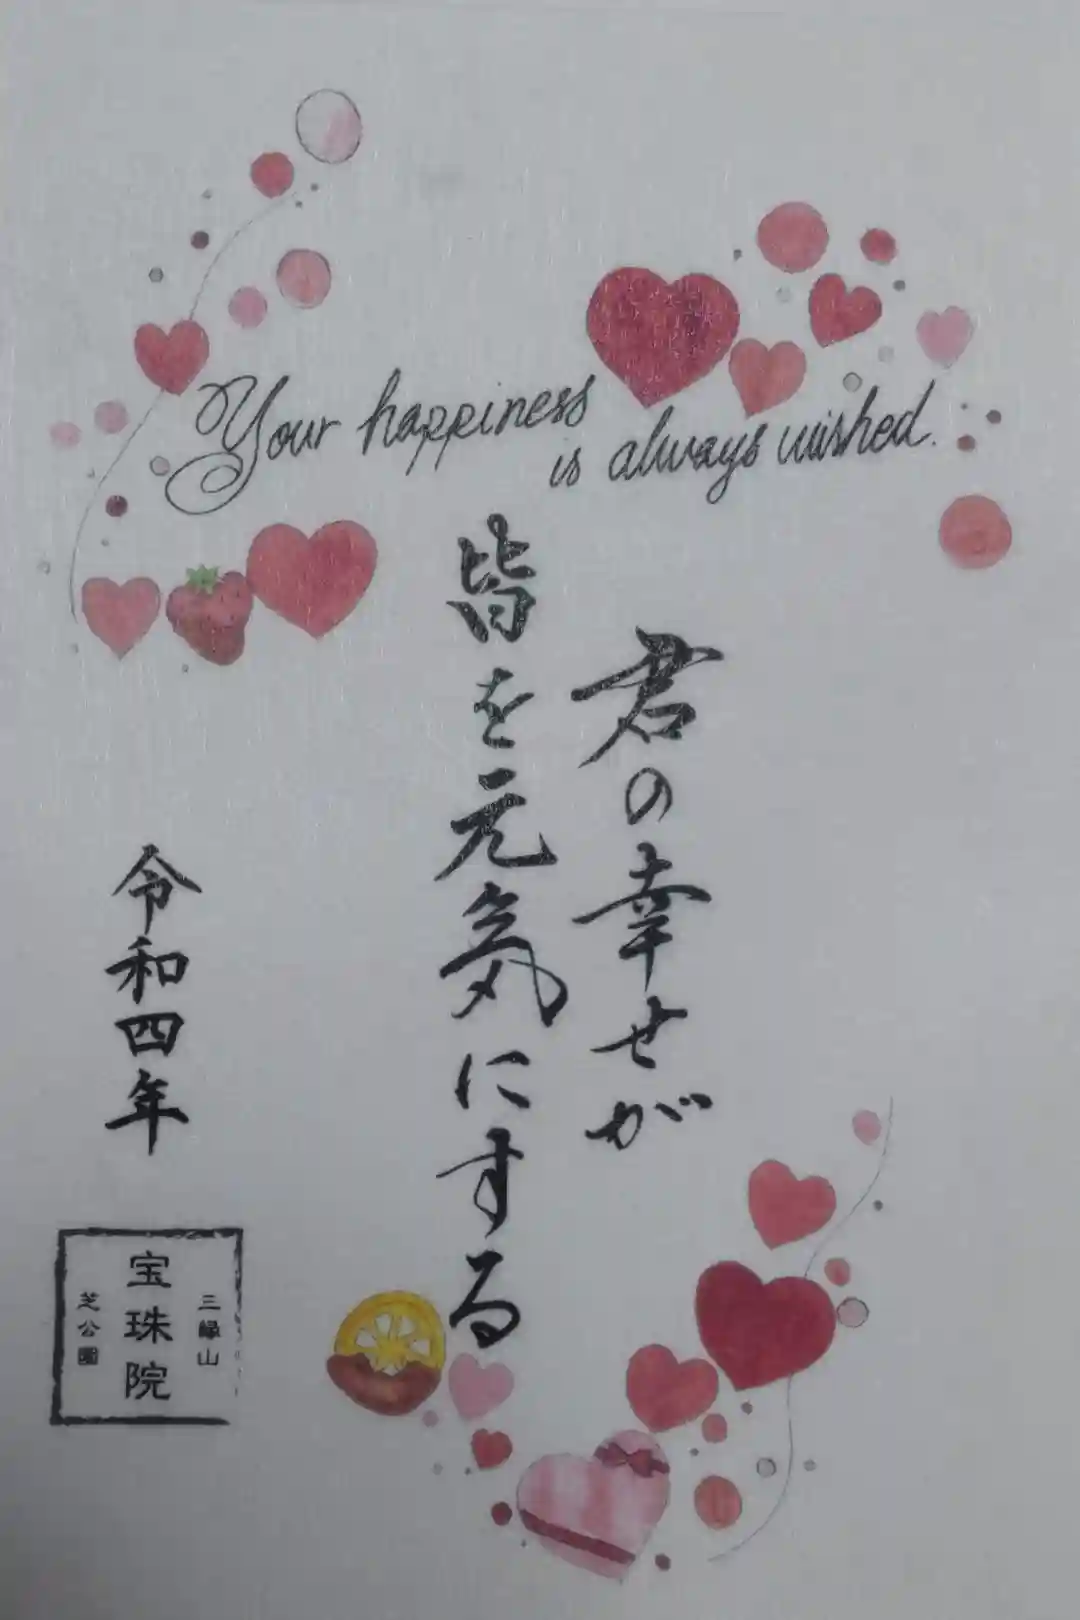 Your happiness
is always wished.
君の幸せが
皆を元気にする
令和四年
三縁山
宝珠院
芝公園